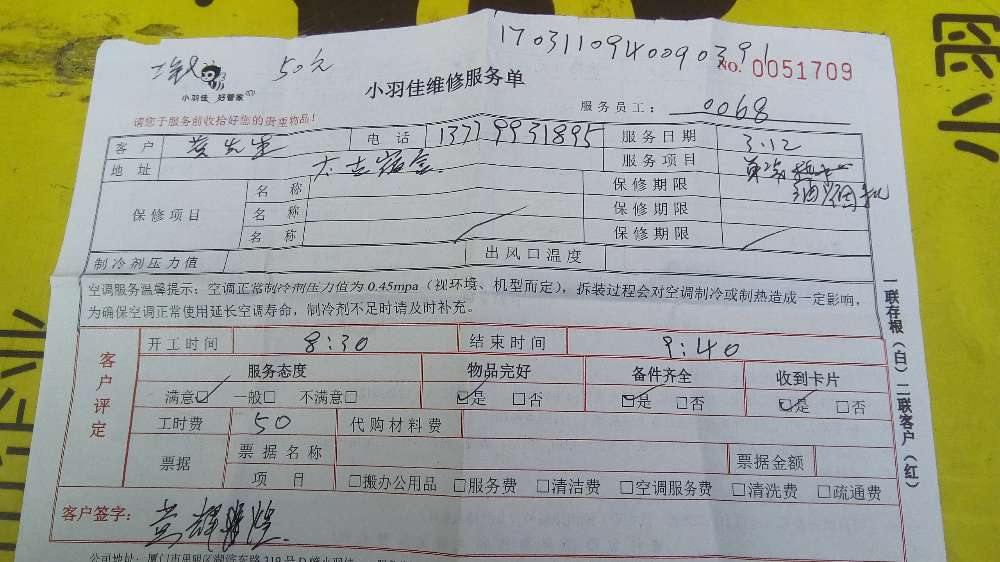 1703110940090391
50元
小羽佳 好管家
小羽佳维修服务单
NO. 0051709
服务员工： 0068
请您于服务前收拾好您的贵重物品！
客户 黄先生 电话 13779931895 服务日期 3.12
地址 服务项目
保修项目 名称 保修期限
名称 保修期限
名称 保修期限
制冷剂压力值 出风口温度
空调服务温馨提示：空调正常制冷剂压力值为0.45mpa（视环境、机型而定），拆装过程会对空调制冷或制热造成一定影响，
为确保空调正常使用延长空调寿命，制冷剂不足时请及时补充。
客户评定
开工时间 8:30 结束时间 9:40
服务态度 物品完好 备件齐全 收到卡片
满意□ 一般□ 不满意□ □是 □否 □是 □否 □是 □否
工时费 50 代购材料费
票据 票据名称 票据金额
项目 □搬办公用品 □服务费 □清洁费 □空调服务费 □清洗费 □疏通费
客户签字：
一联存根（白）二联客户（红）